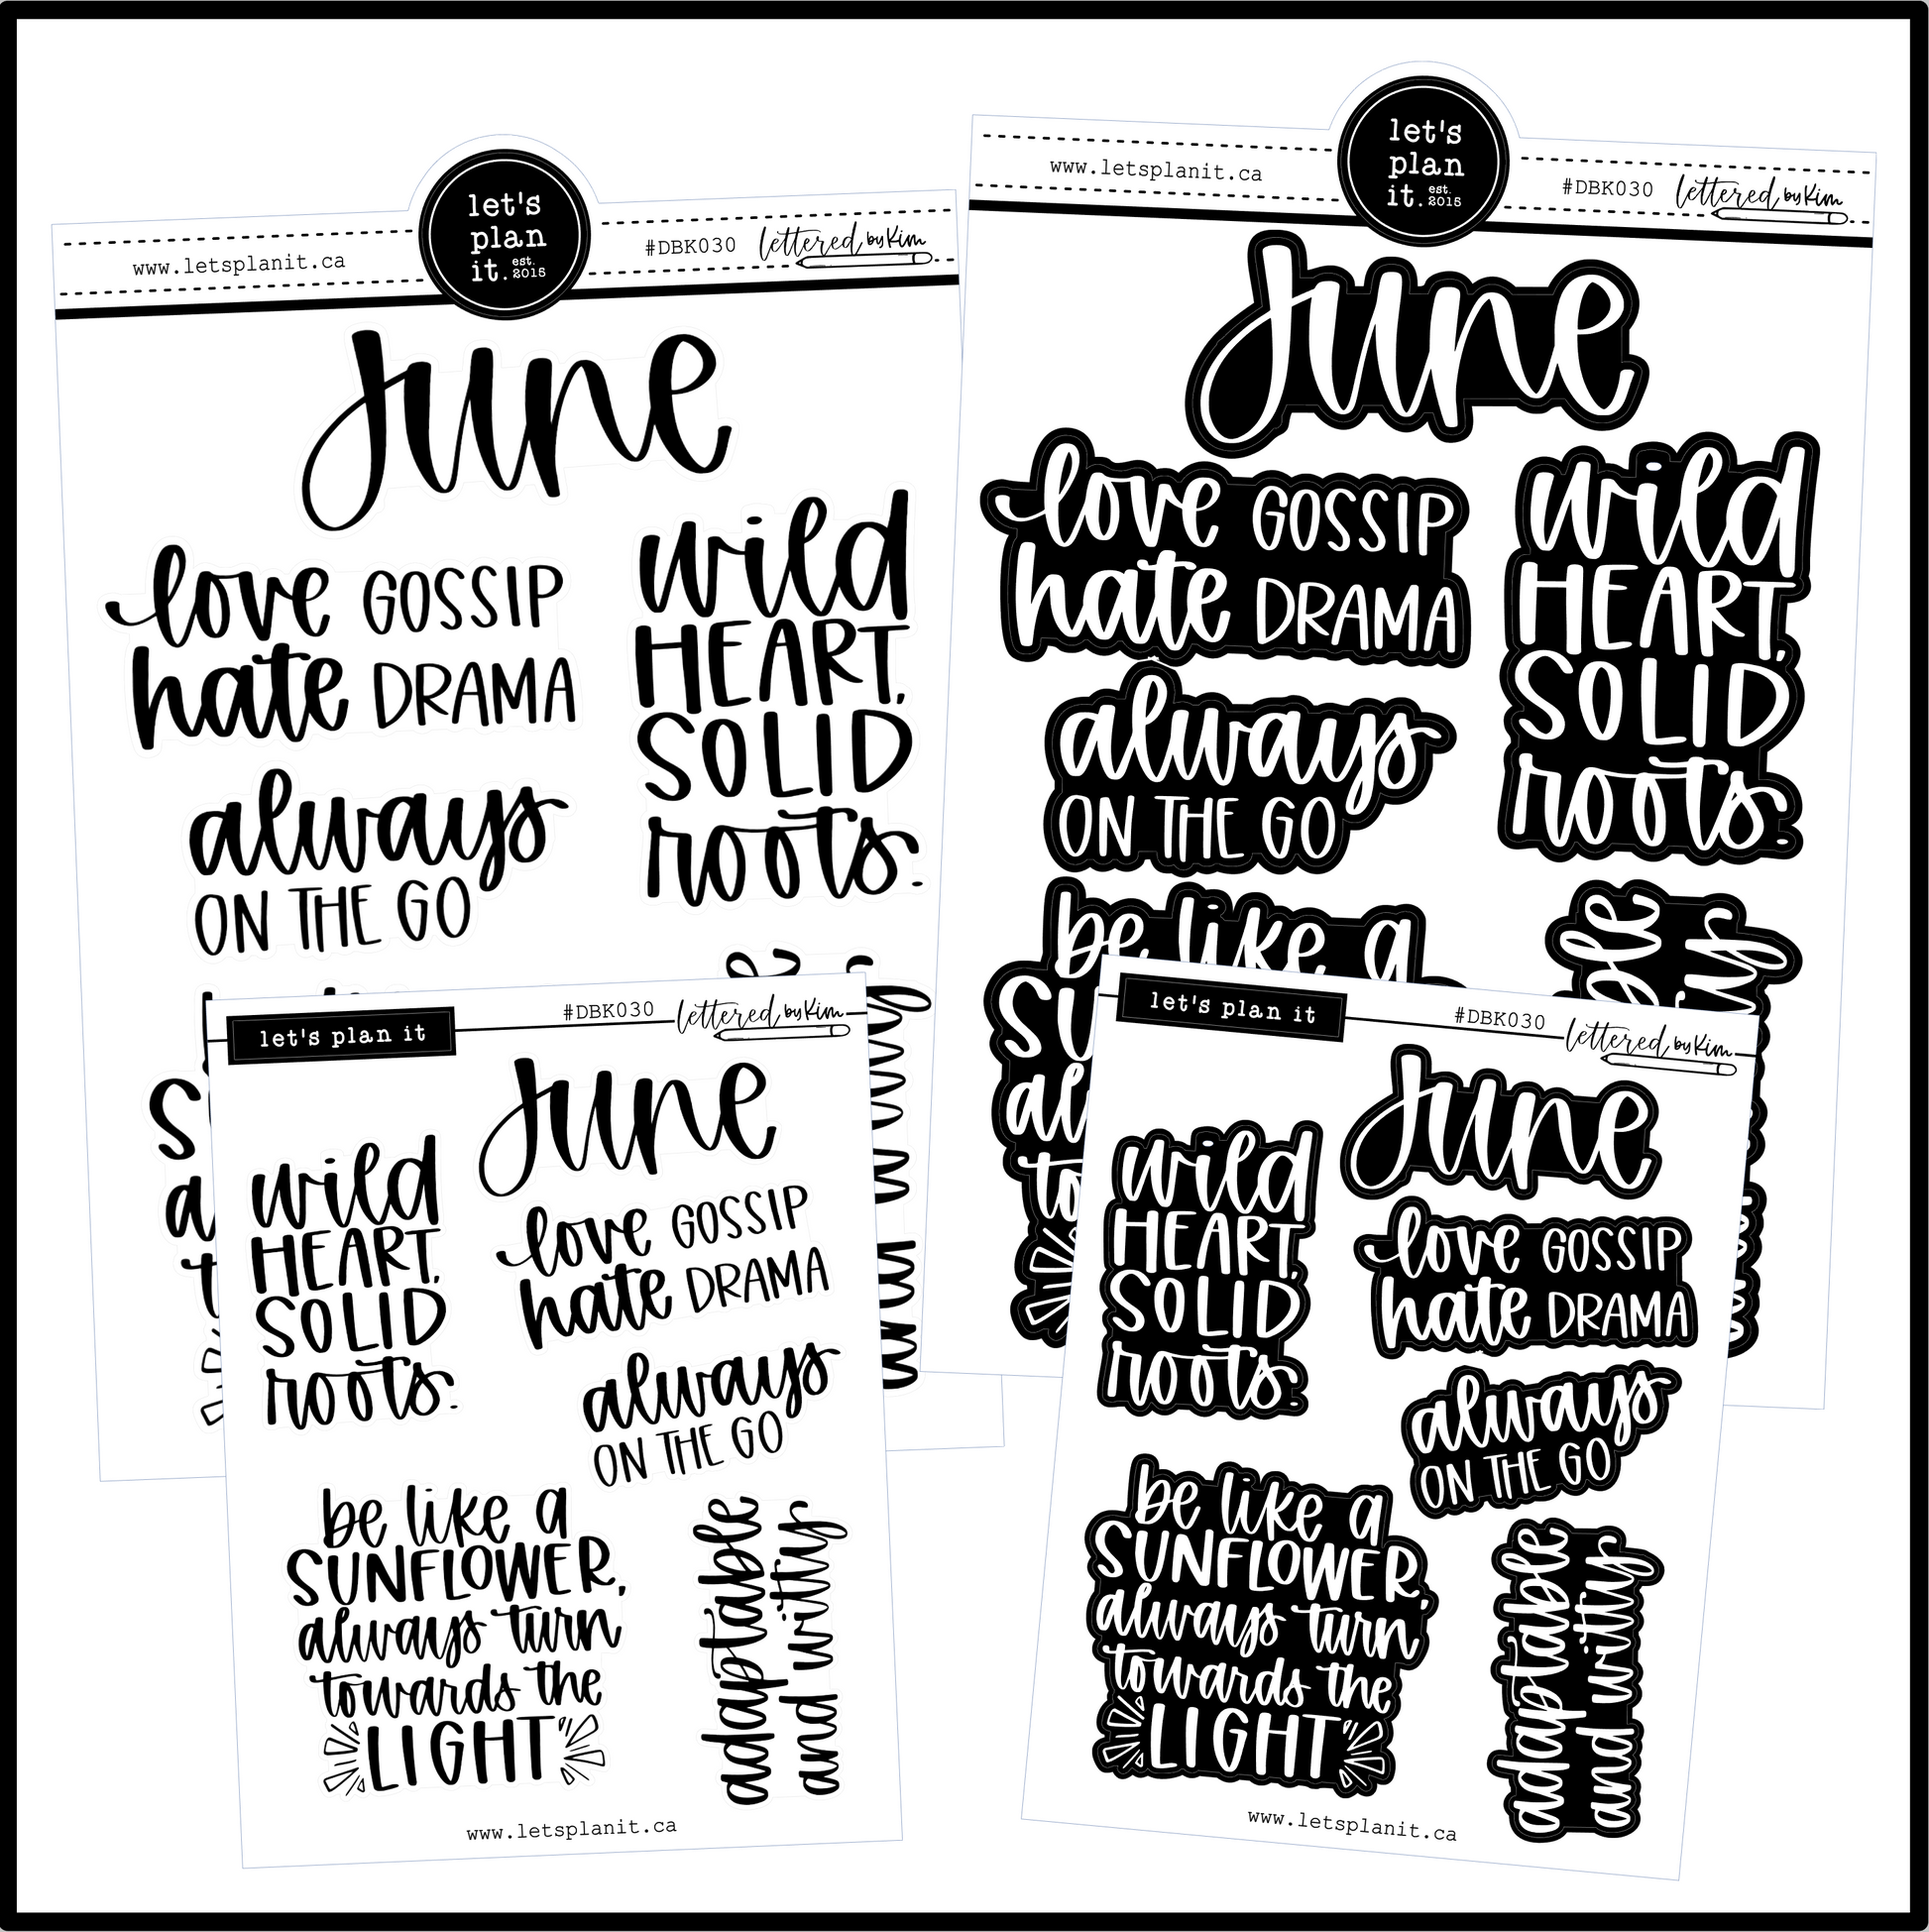 let's
plan
it. est. 2015
www.letsplanit.ca
#DBK030
lettered by Kim
June
love GOSSIP
hate DRAMA
wild
HEART,
SOLID
roots.
always
ON THE GO
let's
plan
it. est. 2015
www.letsplanit.ca
#DBK030
lettered by Kim
June
love GOSSIP
hate DRAMA
wild
HEART,
SOLID
roots.
always
ON THE GO
be like a
let's plan it
#DBK030
lettered by Kim
June
wild
HEART,
SOLID
roots.
love GOSSIP
hate DRAMA
always
ON THE GO
be like a
SUNFLOWER,
always turn
towards the
LIGHT
adaptable
and witty
www.letsplanit.ca
let's plan it
#DBK030
lettered by Kim
June
wild
HEART,
SOLID
roots.
love GOSSIP
hate DRAMA
always
ON THE GO
be like a
SUNFLOWER,
always turn
towards the
LIGHT
adaptable
and witty
www.letsplanit.ca